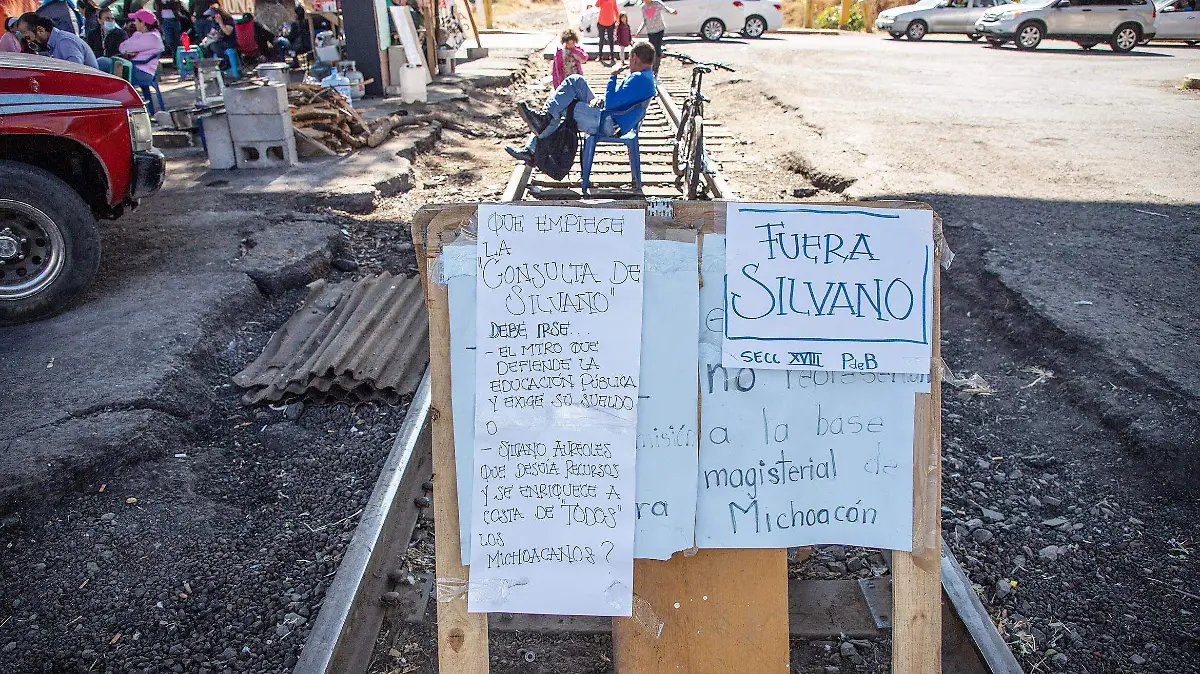 QUE EMPIECE
LA
"CONSULTA DE
SILVANO"
DEBE IRSE...
- EL MTRO QUE
DEFIENDE LA
EDUCACIÓN PÚBLICA
Y EXIGE SU SUELDO
O
- SILVANO AUREOLES
QUE DESVIA RECURSOS
Y SE ENRIQUECE A
COSTA DE "TODOS"
LOS
MICHOACANOS?
FUERA
SILVANO
SECC XVIII PdeB
no representa
a la base
magisterial de
Michoacán